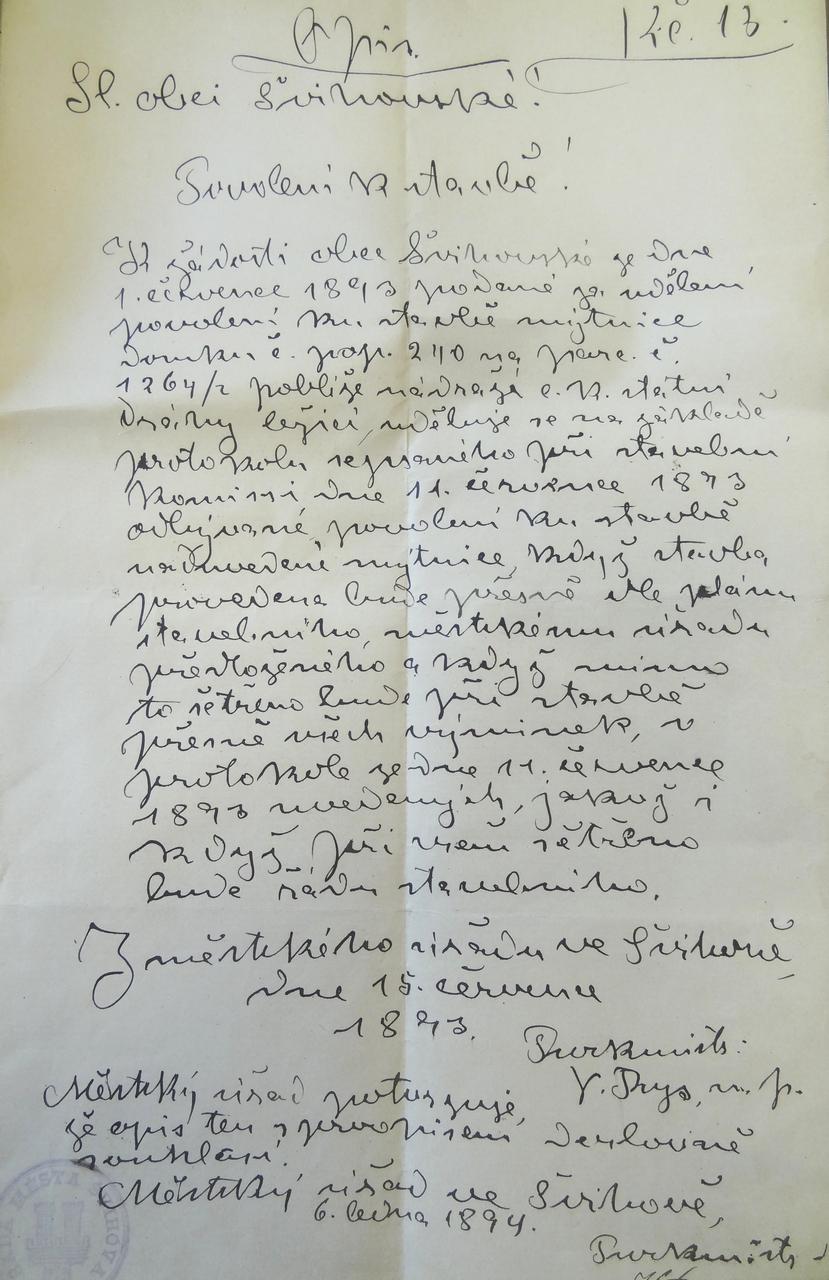 Opis.
K č. 13.
Sl. obci Švihovské!
Povolení k stavbě!
K žádosti obce Švihovské ze dne
1. července 1893 podané za udělení
povolení ku stavbě mýtnice
domku č. pop. 240 na parc. č.
1264/2 poblíže nádraží c. k. státní
dráhy ležící, uděluje se na základě
protokolu sepsaného při stavební
komissi dne 11. července 1893
odbývané, povolení ku stavbě
naduvedené mýtnice, když stavba
provedena bude přesně dle plánu
stavebního, městskému úřadu
předloženého a když mimo
to šetřeno bude při stavbě
přesně všech výminek, v
protokole ze dne 11. července
1893 uvedených, jakož i
když při vší šetřeno
bude řádu stavebního.
Z městského úřadu ve Švihově,
dne 15. července
1893.
Purkmistr:
V. Prys, m. p.
Městský úřad potvrzuje,
že opis ten s prvopisem doslovně
souhlasí.
Městský úřad ve Švihově,
6. ledna 1894.
Purkmistr